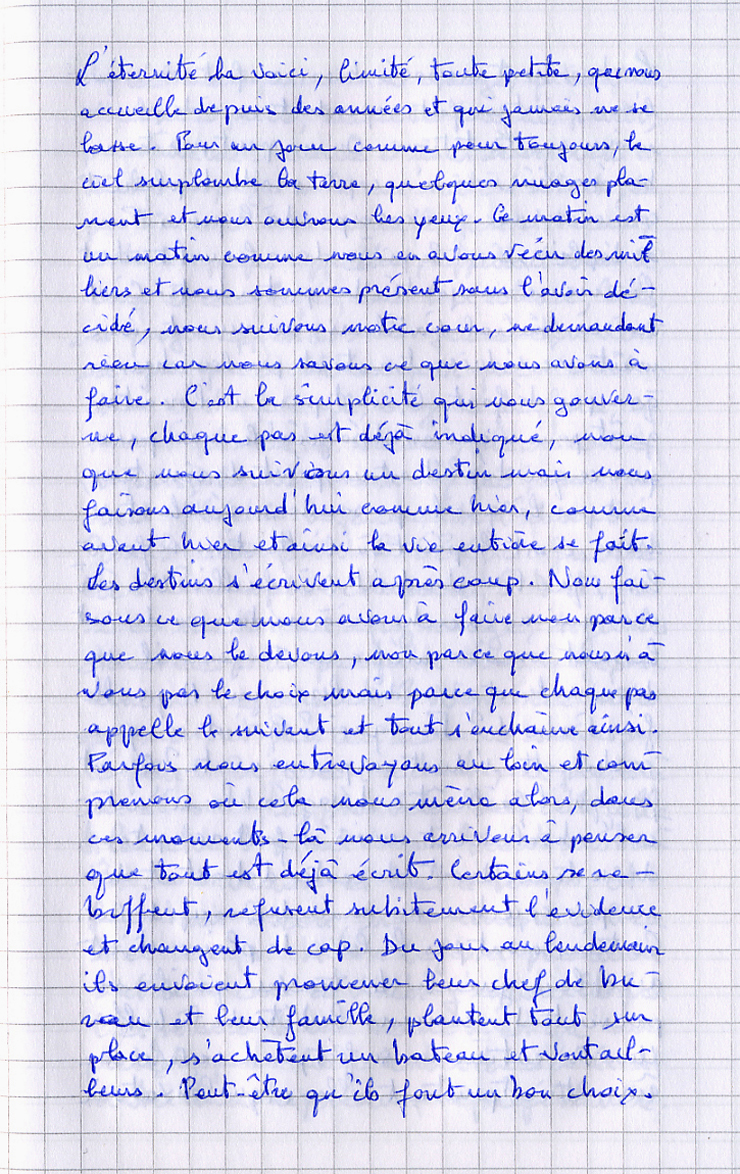 L'éternité la voici, limité, toute petite, qui nous
accueille depuis des années et qui jamais ne se
lasse. Pour un jour comme pour toujours, le
ciel surplombe la terre, quelques nuages pla-
nent et nous ouvrons les yeux. Ce matin est
un matin comme nous en avons vécu des mil-
liers et nous sommes présent sans l'avoir dé-
cidé, nous suivons notre cour, ne demandant
rien car nous savons ce que nous avons à
faire. C'est la simplicité qui nous gouver-
ne, chaque pas est déjà indiqué, non
que nous suivions un destin mais nous
faisons aujourd'hui comme hier, comme
avant hier et ainsi la vie entière se fait.
Les destins s'écrivent après coup. Nous fai-
sons ce que nous avons à faire non parce
que nous le devons, non parce que nous n'a-
vons pas le choix mais parce que chaque pas
appelle le suivant et tout s'enchaîne ainsi.
Parfois nous entrevoyons au loin et com-
prenons où cela nous mène alors, dans
ces moments-là nous arrivons à penser
que tout est déjà écrit. Certains se re-
biffent, refusent subitement l'evidence
et changent de cap. Du jour au lendemain
ils envoient promener leur chef de bu-
reau et leur famille, plantent tout sur
place, s'achètent un bateau et vont ail-
leurs. Peut-être qu'ils font un bon choix.